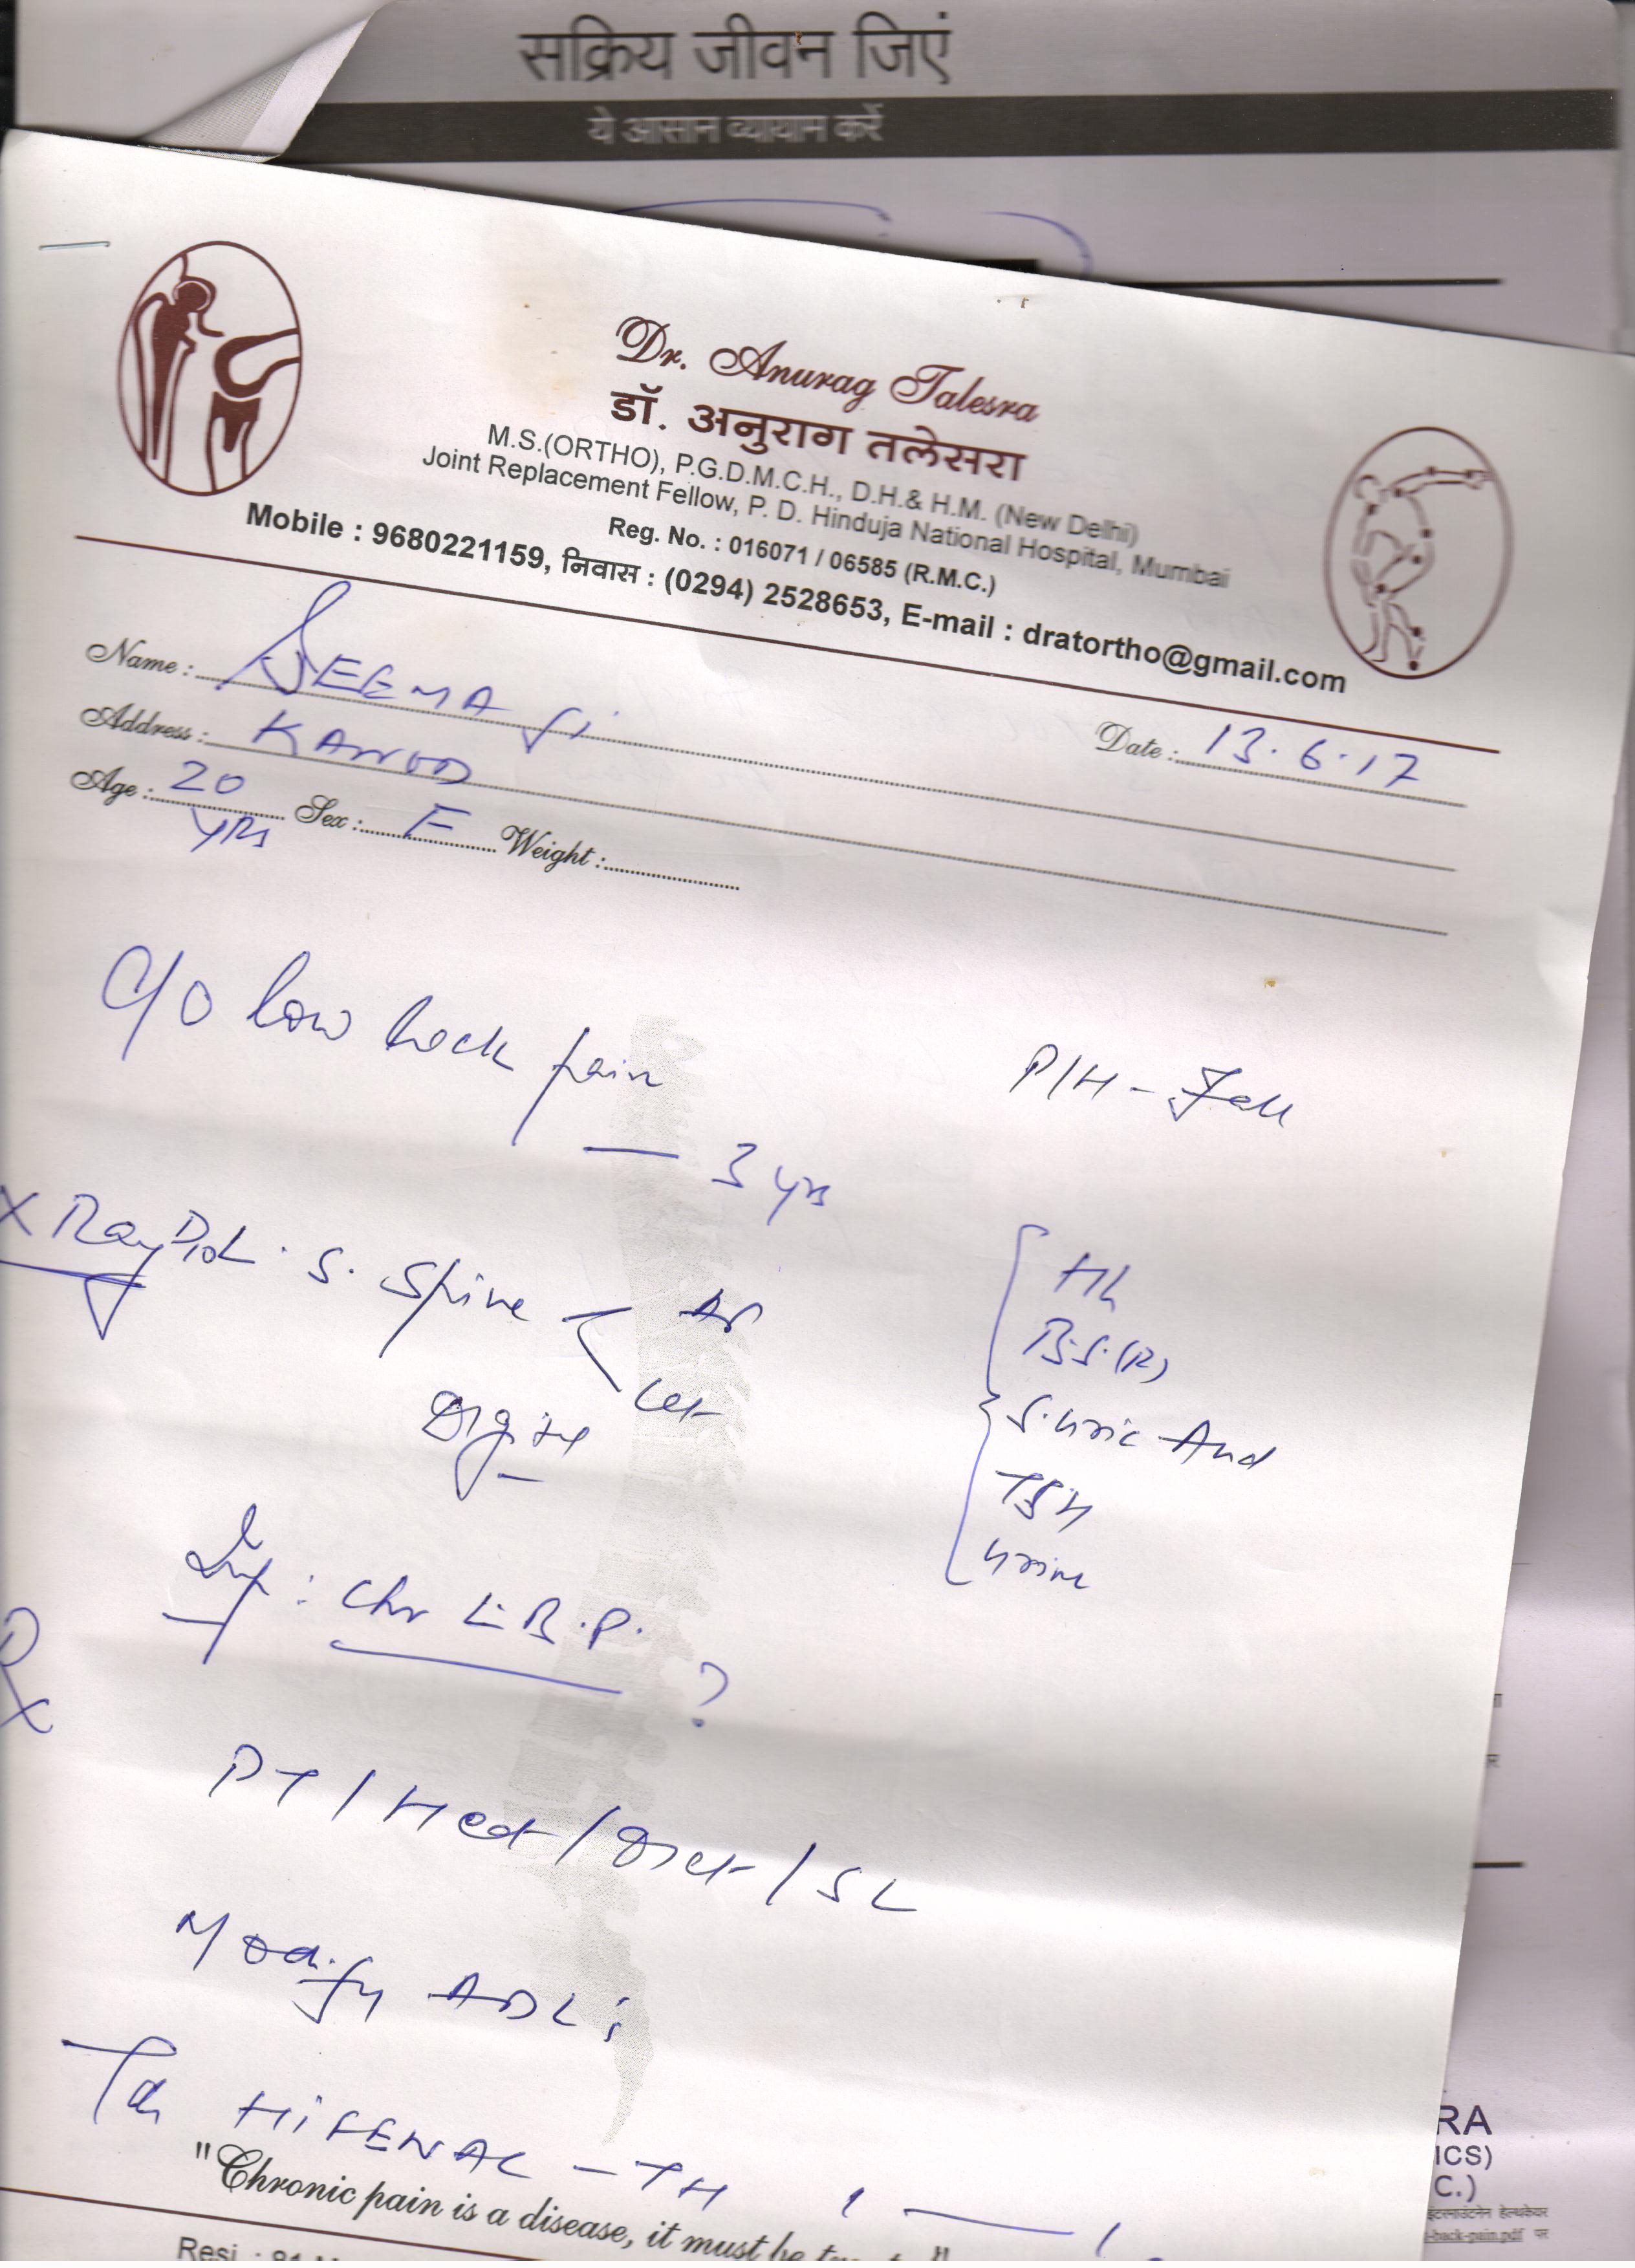 सक्रिय जीवन जिएं
ये आसान व्यायाम करें
Dr. Anurag Talesra
डॉ. अनुराग तलेसरा
M.S.(ORTHO), P.G.D.M.C.H., D.H.& H.M. (New Delhi)
Joint Replacement Fellow, P. D. Hinduja National Hospital, Mumbai
Reg. No. : 016071 / 06585 (R.M.C.)
Mobile : 9680221159, निवास : (0294) 2528653, E-mail : dratortho@gmail.com
Name : SEEMA Ji
Date : 13.6.17
Address : KANOD
Age : 20 yrs Sex : F Weight :
C/O low back pain
— 3 yrs
P/H - Fall
X Ray S. Spine
AP
Lat
Hb
B.S.(R)
S. Uric Acid
TSH
Urine
Imp : Chr L.B.P. ?
Rx
PT / Heat / Diet / SL
Modify ADL
Tab HIFENAC - TH 1 — 1
"Chronic pain is a disease, it must be
Resi. :
RA
ICS)
C.)
इंटरनाउंटनेन हेल्थकेयर
-back-pain.pdf पर